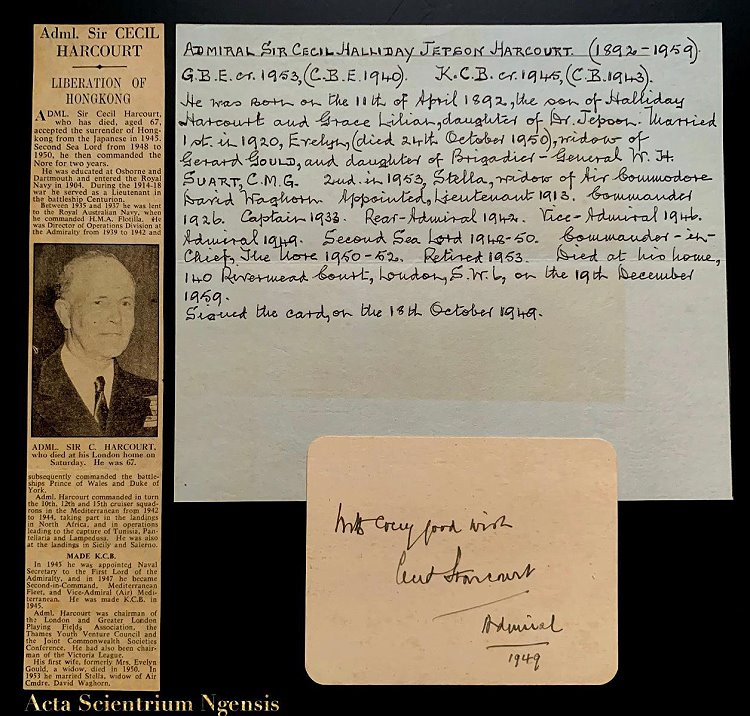 Adml. Sir CECIL
HARCOURT
LIBERATION OF
HONGKONG
ADML. Sir Cecil Harcourt,
who has died, aged 67,
accepted the surrender of Hong-
kong from the Japanese in 1945.
Second Sea Lord from 1948 to
1950, he then commanded the
Nore for two years.
He was educated at Osborne and
Dartmouth and entered the Royal
Navy in 1904. During the 1914-18
war he served as a Lieutenant in
the battleship Centurion.
Between 1935 and 1937 he was lent
to the Royal Australian Navy, when
he commanded H.M.A. Flotilla. He
was Director of Operations Division at
the Admiralty from 1939 to 1942 and
ADML. SIR C. HARCOURT,
who died at his London home on
Saturday. He was 67.
subsequently commanded the battle-
ships Prince of Wales and Duke of
York.
Adml. Harcourt commanded in turn
the 10th, 12th and 15th cruiser squad-
rons in the Mediterranean from 1942
to 1944, taking part in the landings
in North Africa, and in operations
leading to the capture of Tunisia, Pan-
tellaria and Lampedusa. He was also
at the landings in Sicily and Salerno.
MADE K.C.B.
In 1945 he was appointed Naval
Secretary to the First Lord of the
Admiralty, and in 1947 he became
Second-in-Command, Mediterranean
Fleet, and Vice-Admiral (Air) Medi-
terranean. He was made K.C.B. in
1945.
Adml. Harcourt was chairman of
the London and Greater London
Playing Fields Association, the
Thames Youth Venture Council and
the Joint Commonwealth Societies
Conference. He had also been chair-
man of the Victoria League.
His first wife, formerly Mrs. Evelyn
Gould, a widow, died in 1950. In
1953 he married Stella, widow of Air
Cmdre. David Waghorn.
ADMIRAL SIR CECIL HALLIDAY JEPSON HARCOURT. (1892-1959).
G.B.E. cr. 1953, (C.B.E. 1940). K.C.B. cr. 1945, (C.B. 1943).
He was born on the 11th of April 1892, the son of Halliday
Harcourt and Grace Lilian, daughter of Dr. Jepson. Married
1st. in 1920, Evelyn, (died 24th October 1950), widow of
Gerard GOULD, and daughter of Brigadier-General W. H.
SUART, C.M.G. 2nd. in 1953, Stella, widow of Air Commodore
David Waghorn. Appointed, Lieutenant 1913. Commander
1926. Captain 1933. Rear-Admiral 1942. Vice-Admiral 1946.
Admiral 1949. Second Sea Lord 1948-50. Commander-in-
Chief, The Nore 1950-52. Retired 1953. Died at his home,
140 Rivermead Court, London, S.W.6, on the 19th December
1959.
Signed the card, on the 18th October 1949.
With every good wish
Cecil Harcourt
Admiral
1949
Acta Scientrium Ngensis